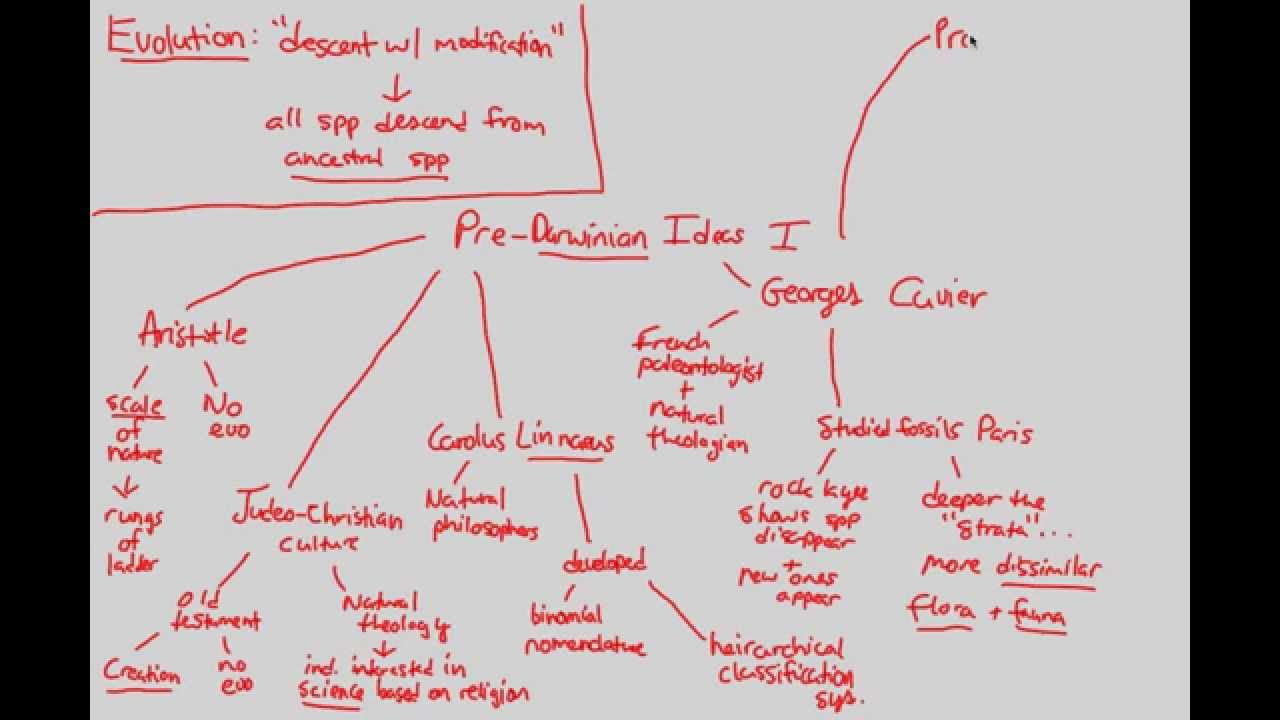 Evolution: "descent w/ modification"
all spp descend from
ancestral spp
Pro
Pre-Darwinian Ideas I
Aristotle
scale
of
nature
rungs
of
ladder
No
evo
Judeo-Christian
culture
Old
testament
Creation
no
evo
Natural
theology
ind. interested in
science based on religion
Carolus Linnaeus
Natural
philosophers
developed
binomial
nomenclature
heirarchical
classification
sys.
Georges Cuvier
French
paleontologist
+
natural
theologian
Studied fossils Paris
rock layer
shows spp
disappear
+
new ones
appear
deeper the
"strata"...
more dissimilar
flora + fauna